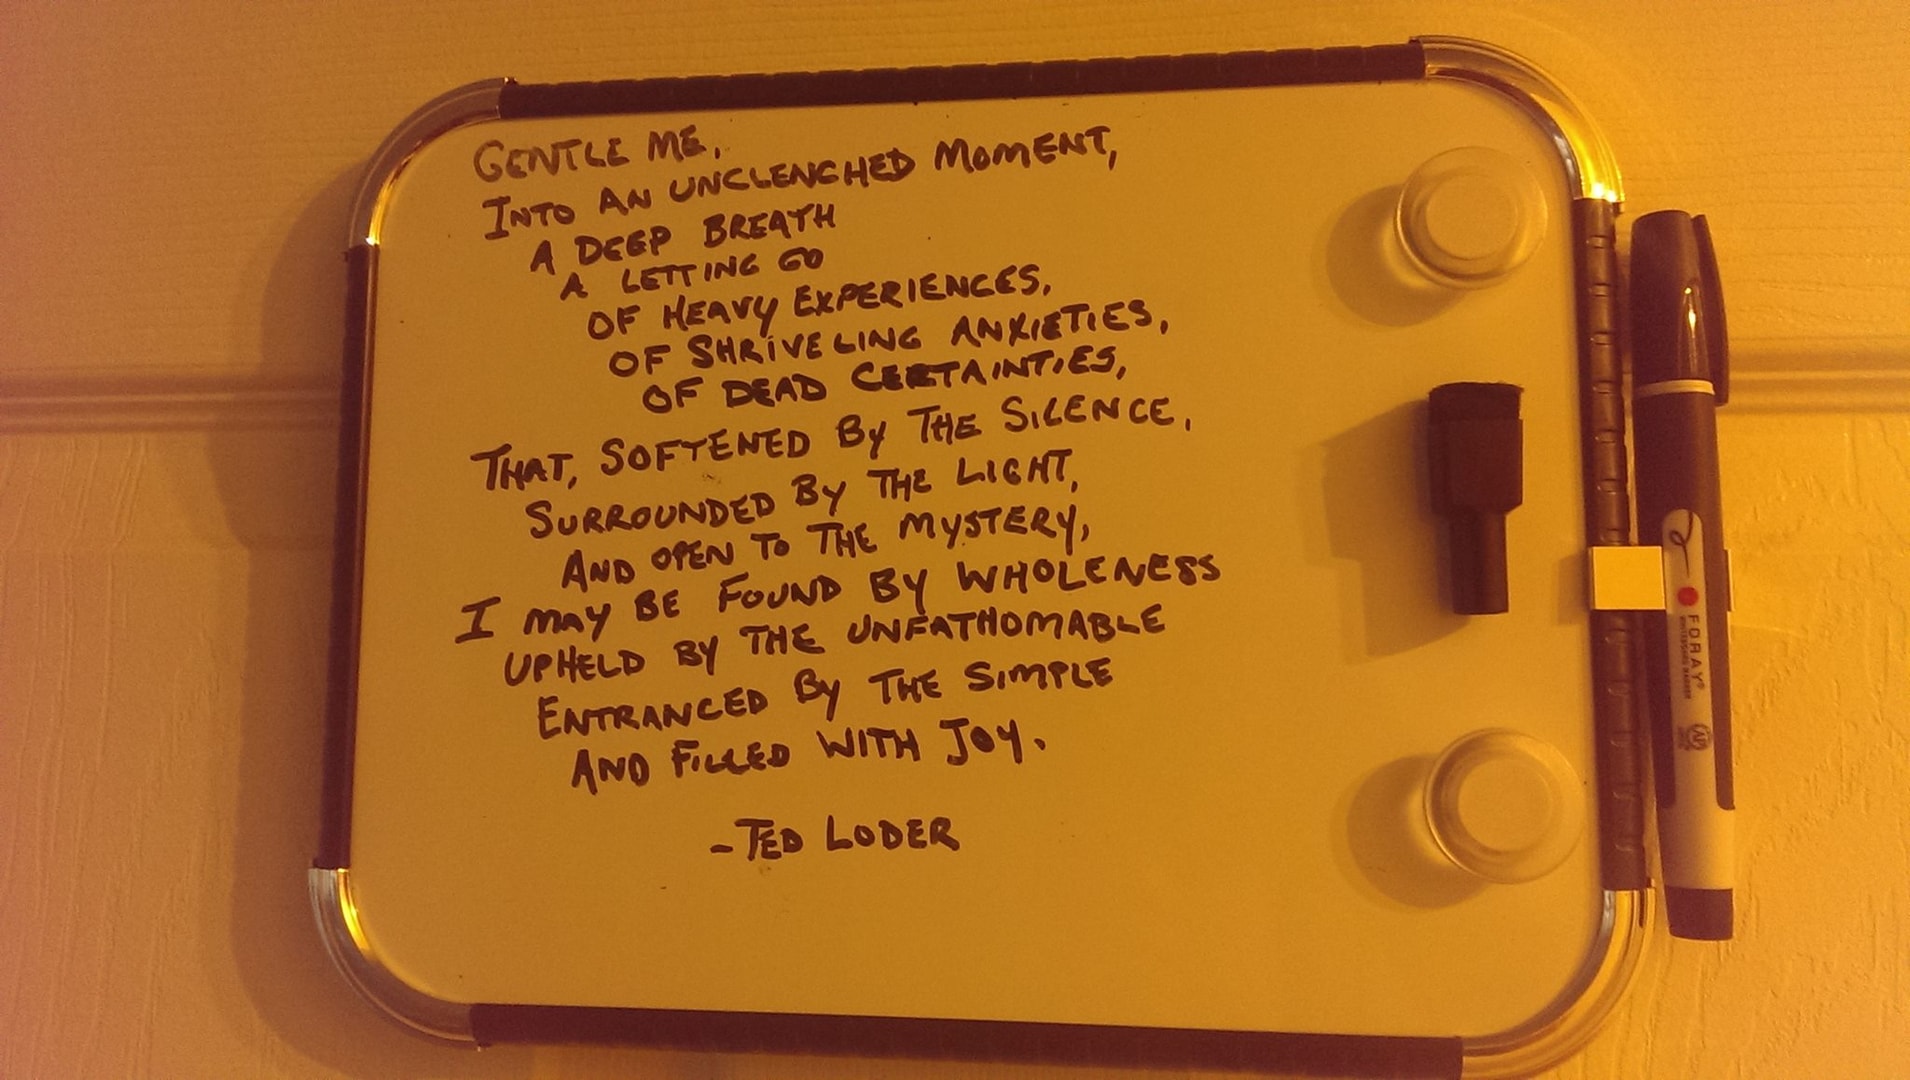 GENTLE ME,
INTO AN UNCLENCHED MOMENT,
A DEEP BREATH
A LETTING GO
OF HEAVY EXPERIENCES,
OF SHRIVELING ANXIETIES,
OF DEAD CERTAINTIES,
THAT, SOFTENED BY THE SILENCE,
SURROUNDED BY THE LIGHT,
AND OPEN TO THE MYSTERY,
I MAY BE FOUND BY WHOLENESS
UPHELD BY THE UNFATHOMABLE
ENTRANCED BY THE SIMPLE
AND FILLED WITH JOY.
- TED LODER
FORAY®
AP